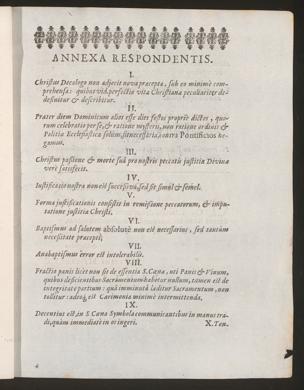 ANNEXA RESPONDENTIS.
I.
Christus Decalogo non adjecit nova præcepta, sub eo minimè com-
prehensa: quibus vid. perfectio vitæ Christianæ peculiariter de-
definitur & describitur.
II.
Præter diem Dominicum alios esse dies festos propriè dictos, quo-
rum celebratio per se, & ratione mysterii, non ratione ordinis &
Politiæ Ecclesiasticæ solùm, sit necessaria, contra Pontificios ne-
gamus.
III.
Christus passione & morte suâ pro nostris peccatis justitiæ Divinæ
verè satisfecit.
IV.
Justificatio nostra non est successiva, sed sit simul & semel.
V.
Forma justificationis consistit in remissione peccatorum, & im-
putatione justitiæ Christi.
VI.
Baptismus ad salutem absolutè non est necessarius, sed tantùm
necessitate præcepti;
VII.
Anabaptismus error est intolerabilis.
VIII.
Fractio panis licet non sit de essentia S. Cœnæ, uti Panis & Vinum,
quibus deficientibus Sacramentum habetur nullum, tamen est de
integritate partium: quâ imminutâ læditur Sacramentum, non
tollitur: adeoq́ est Cærimonia minimè intermittenda.
IX.
Decentius est, in S. Cœna Symbola communicantibus in manus tra-
di, quàm immediatè in os ingeri.
X. Ten.